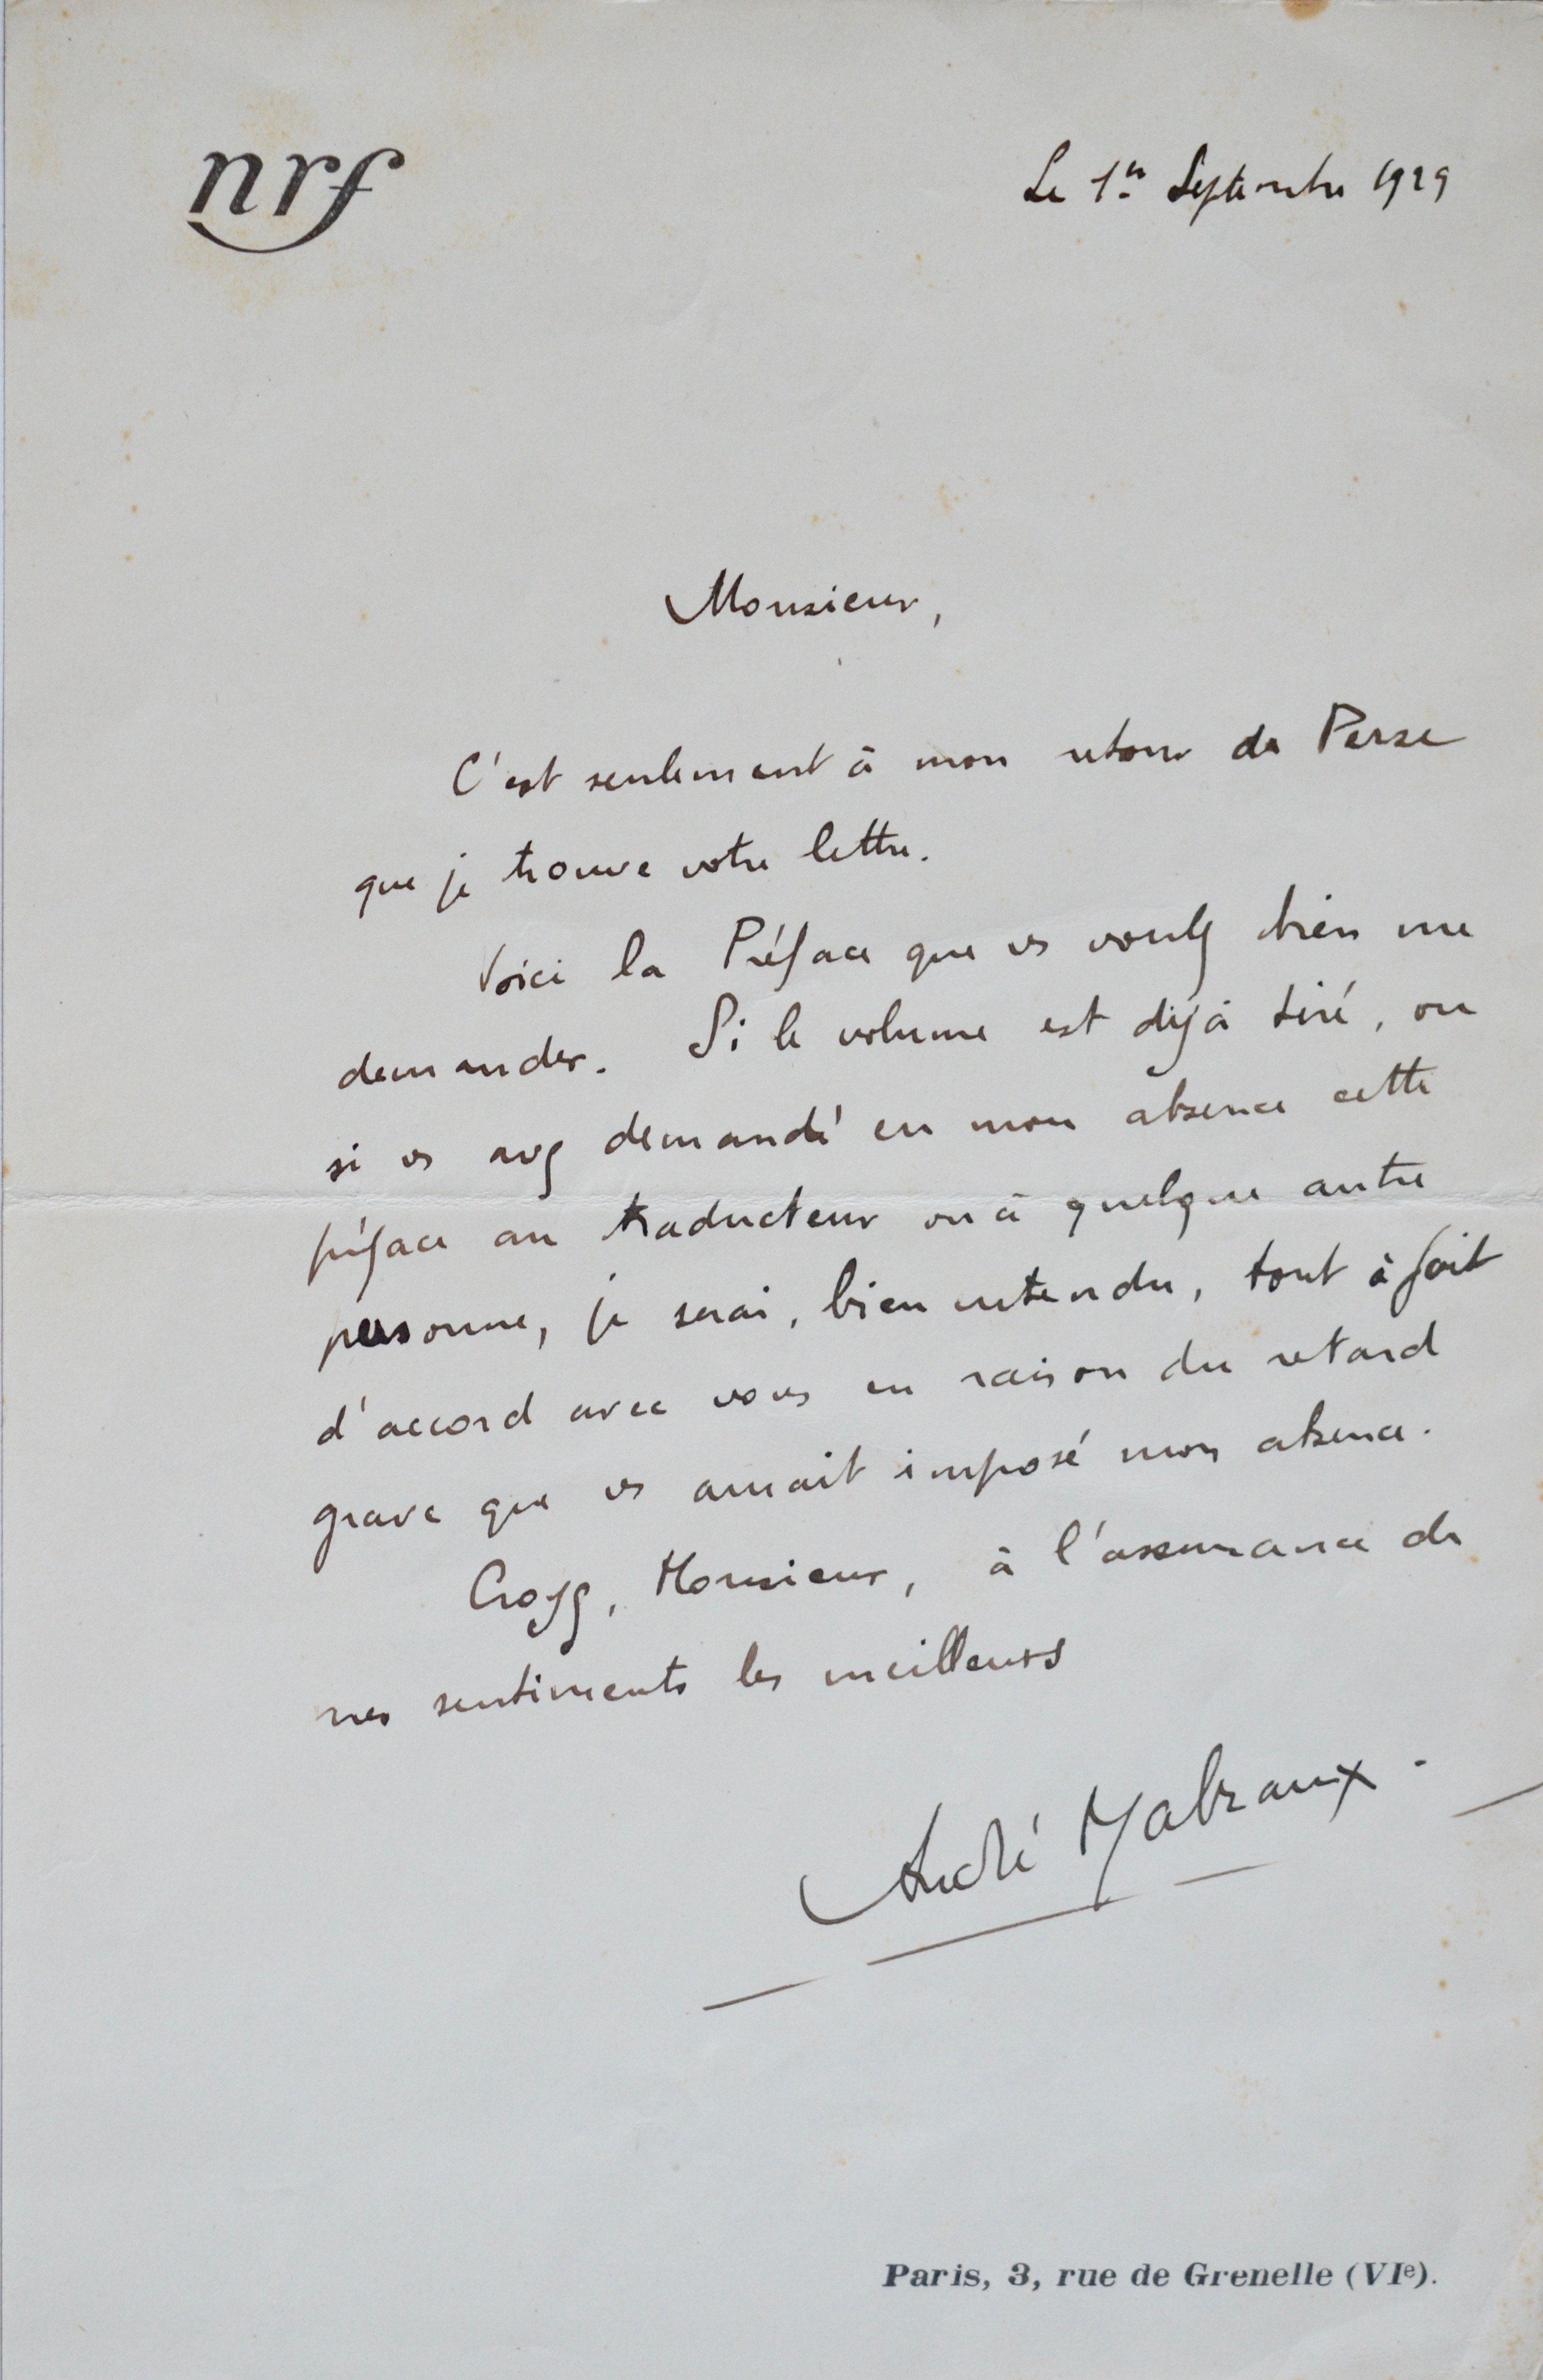 nrf
Le 1er Septembre 1929
Monsieur,
C'est seulement à mon retour de Perse
que je trouve votre lettre.
Voici la Préface que vs voulez bien me
demander. Si le volume est déjà tiré, ou
si vs avez demandé en mon absence cette
préface au traducteur ou à quelque autre
personne, je serai, bien entendu, tout à fait
d'accord avec vous en raison du retard
grave que vs aurait imposé mon absence.
Croyez, Monsieur, à l'assurance de
mes sentiments les meilleurs
André Malraux.
Paris, 3, rue de Grenelle (VIe).